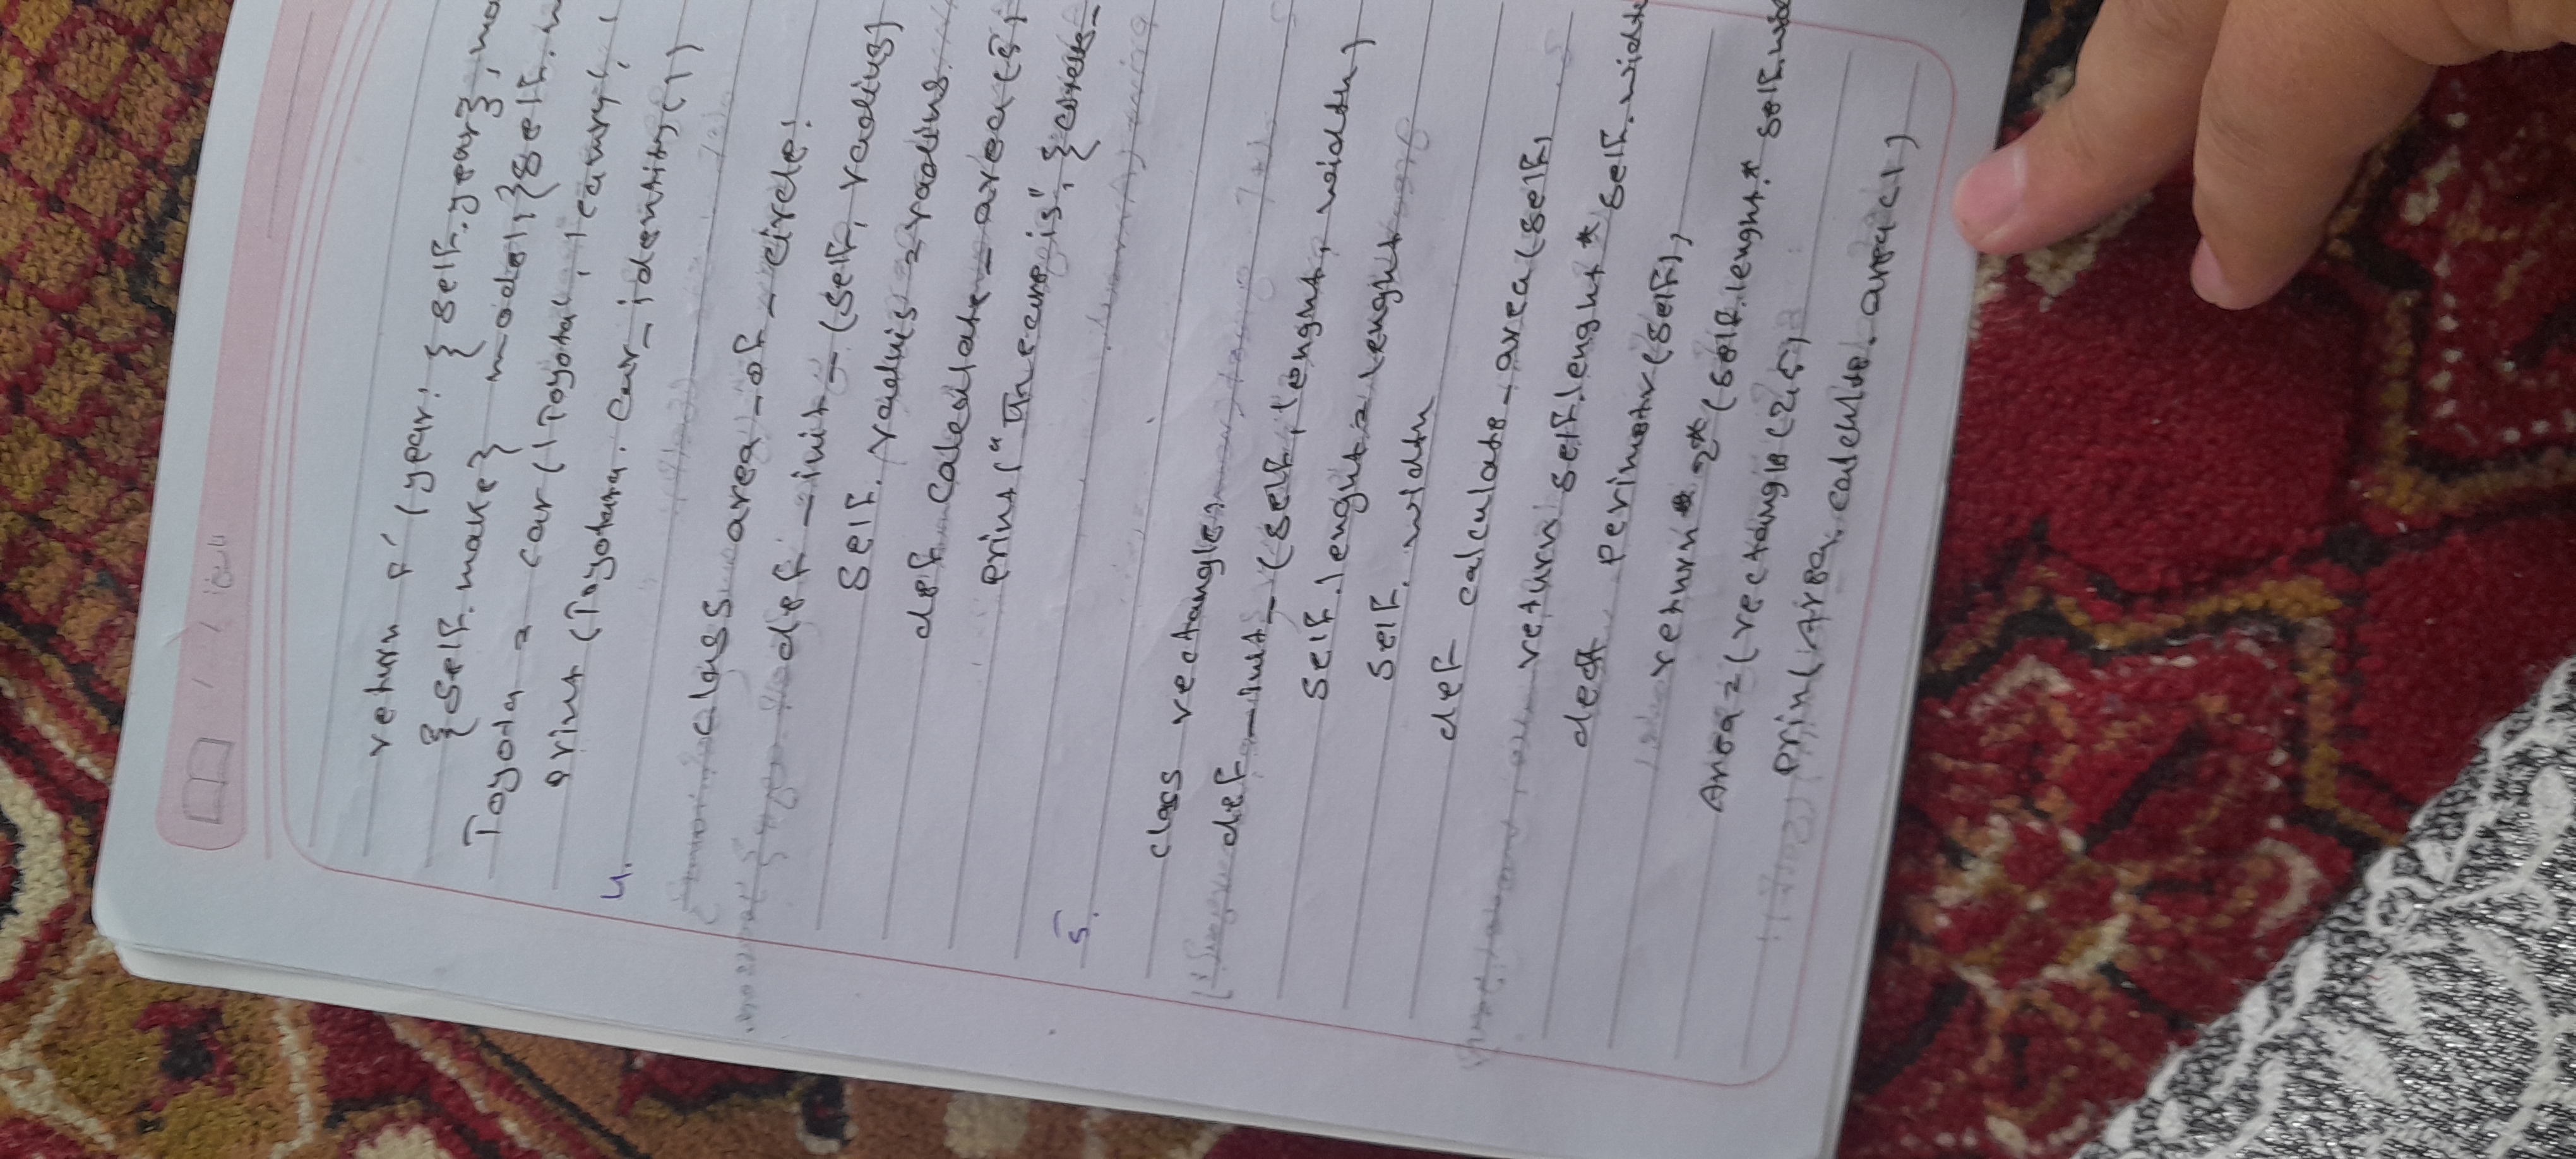 تاریخ: / /
return f'(year: {self.year}, mo
{self.make} model, {self. m
Toyota = car ('Toyota', 'camry', '
print (Toyotata. car_identity())
4.
class area_of_circle:
def _init_ (self, radius)
self. raduis = radius
def calculate_area(s
print("The are is", {
5.
class rectangle:
def _init_ (self, lenght, width)
self.lenght = lenght
self. width
def calculate_area(self)
return self.lenght * self.width
perimetr(self),
return* 2*(self.lenght.* self.wid
Area = (rectangle(2,5)
prin( Area. area())